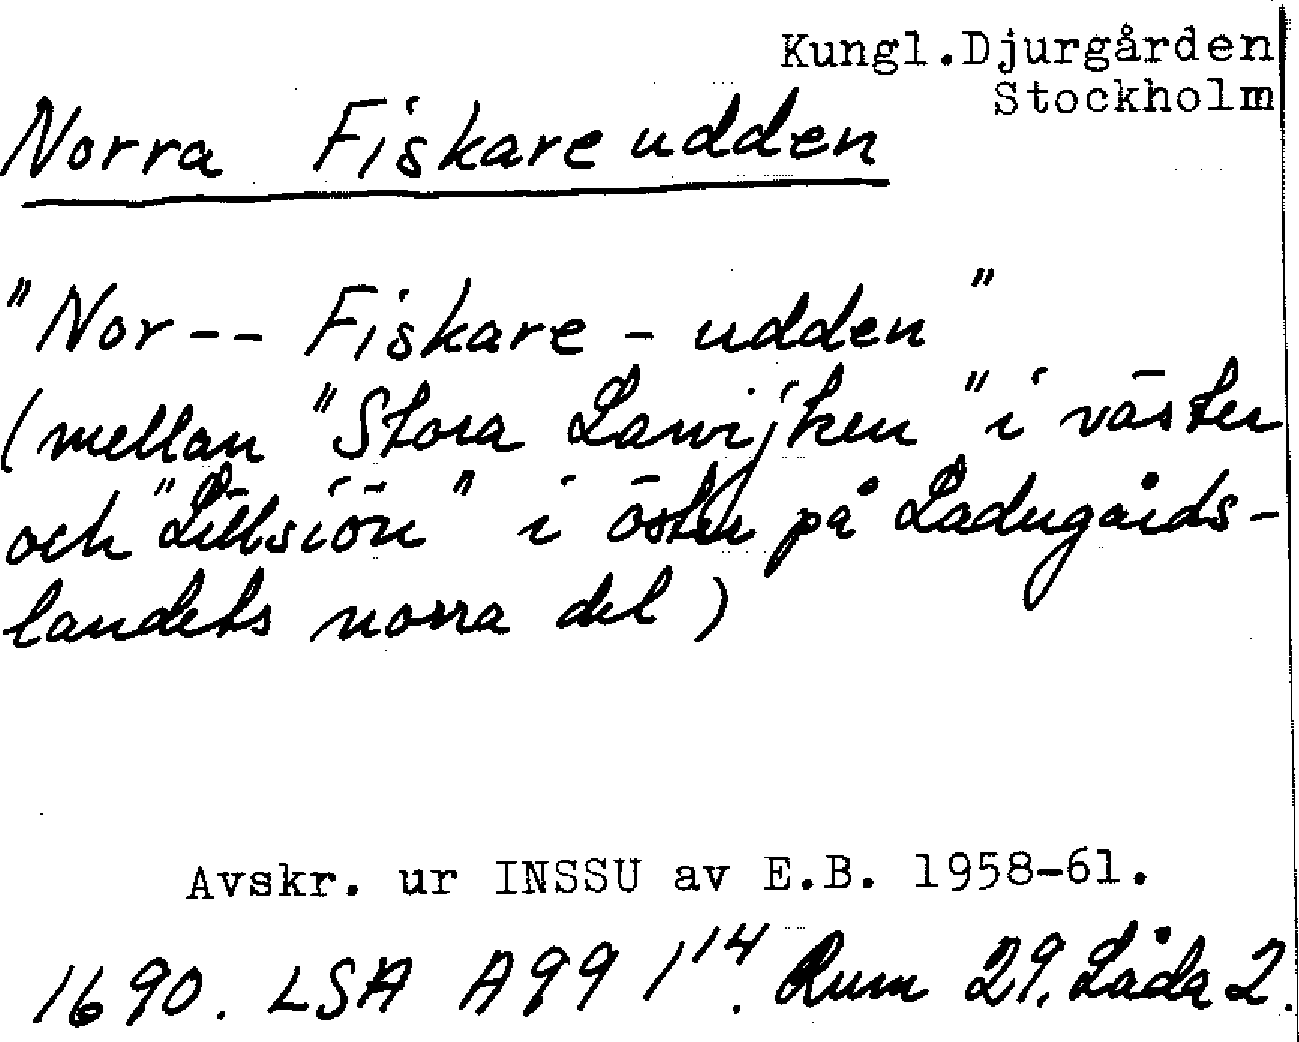 Kungl.Djurgården
Stockholm
Norra Fiskareudden
"Nor-- Fiskare - udden"
(mellan "Stora Lawijken" i väster
och "Lillsiön" i öster på Ladugårds-
landets norra del)
Avskr. ur INSSU av E.B. 1958-61.
1690. LSA A99 1¹⁴. Rum 29. Låda 2.